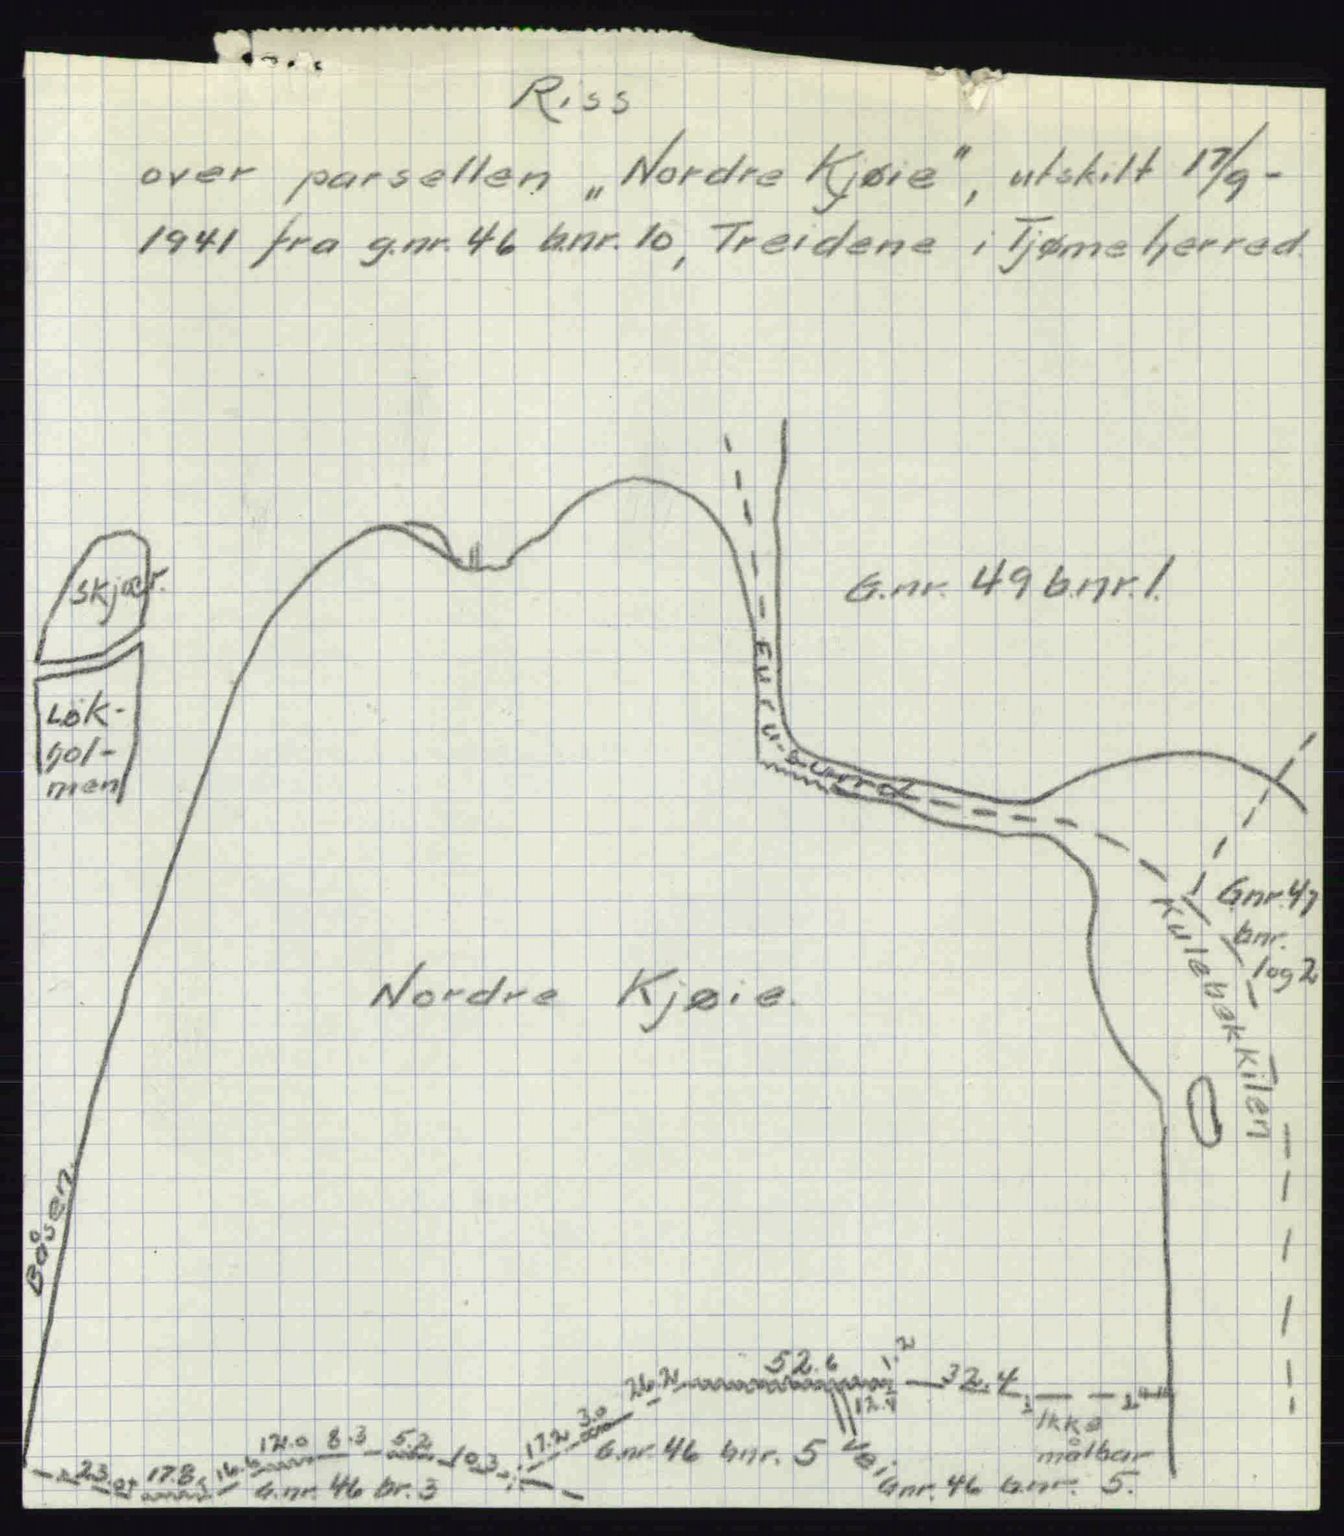 Riss
over parsellen „Nordre Kjøie”, utskilt 17/9-
1941 fra g.nr. 46 b.nr. 10, Treidene i Tjøme herred.
Skjær.
Løk-
hol-
men
G.nr. 49 b.nr. 1.
Furu-sund
G.nr. 47
bnr.
1 og 2
Kulebøkkilen
Nordre Kjøie.
Båsen.
52.6
1.2
32.4
26.2
12.4
3.0
17.2
Ikke
målbar
12.0 8.3 5.2 10.3
G.nr. 46 bnr. 5 Vei
23.0 17.8 16.6
G.nr. 46 br. 3
Gnr. 46 bnr. 5.